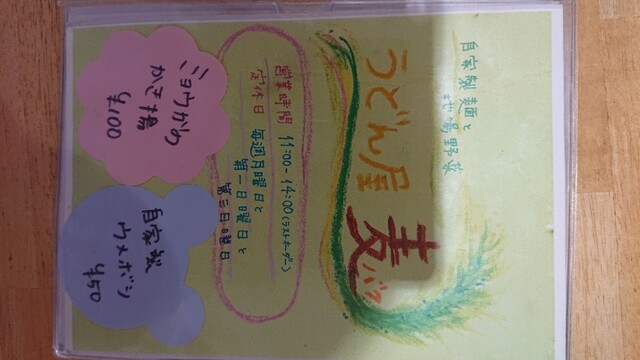 自家製麺と
地場野菜
うどん屋
麦
営業時間 11:00-14:00(ラストオーダー)
定休日 毎週月曜日と
第一日曜日と
第三日曜日
ミョウガの
かき揚
¥100
自家製
ウメボシ
¥50